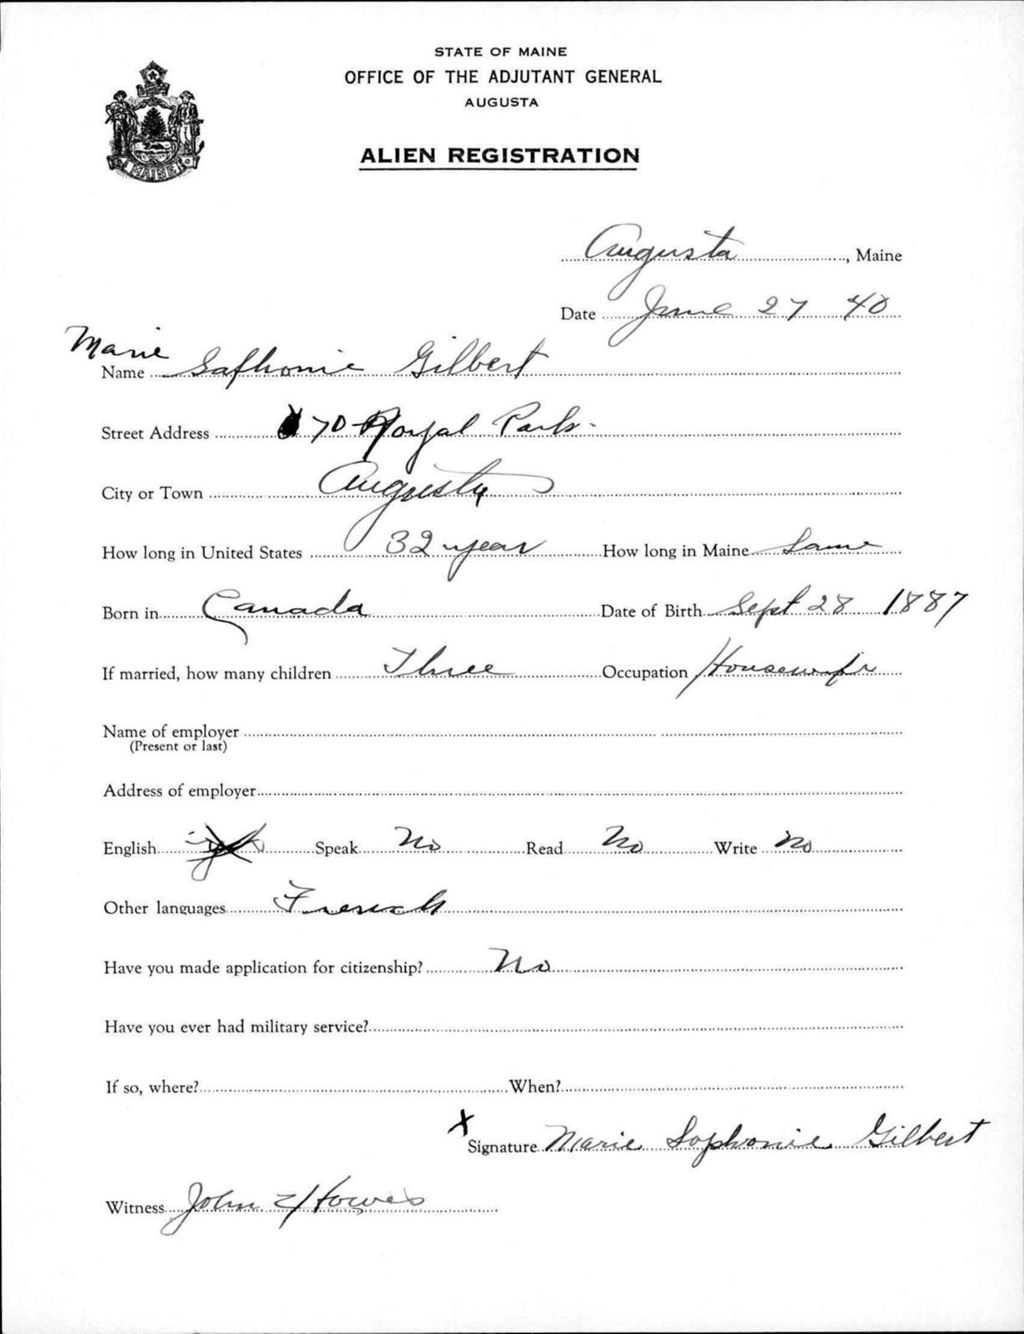 STATE OF MAINE
OFFICE OF THE ADJUTANT GENERAL
AUGUSTA
ALIEN REGISTRATION
MAINE
Augusta, Maine
Date June 27 40
Marie
Name Safhonie Gilbert
Street Address 70 Royal Park
City or Town Augusta
How long in United States 32 year How long in Maine Same
Born in Canada Date of Birth Sept 28 1887
If married, how many children Three Occupation Housewife
Name of employer
(Present or last)
Address of employer
English Speak No Read No Write No
Other languages French
Have you made application for citizenship? No
Have you ever had military service?
If so, where? When?
X Signature Marie Sophonie Gilbert
Witness John Howes